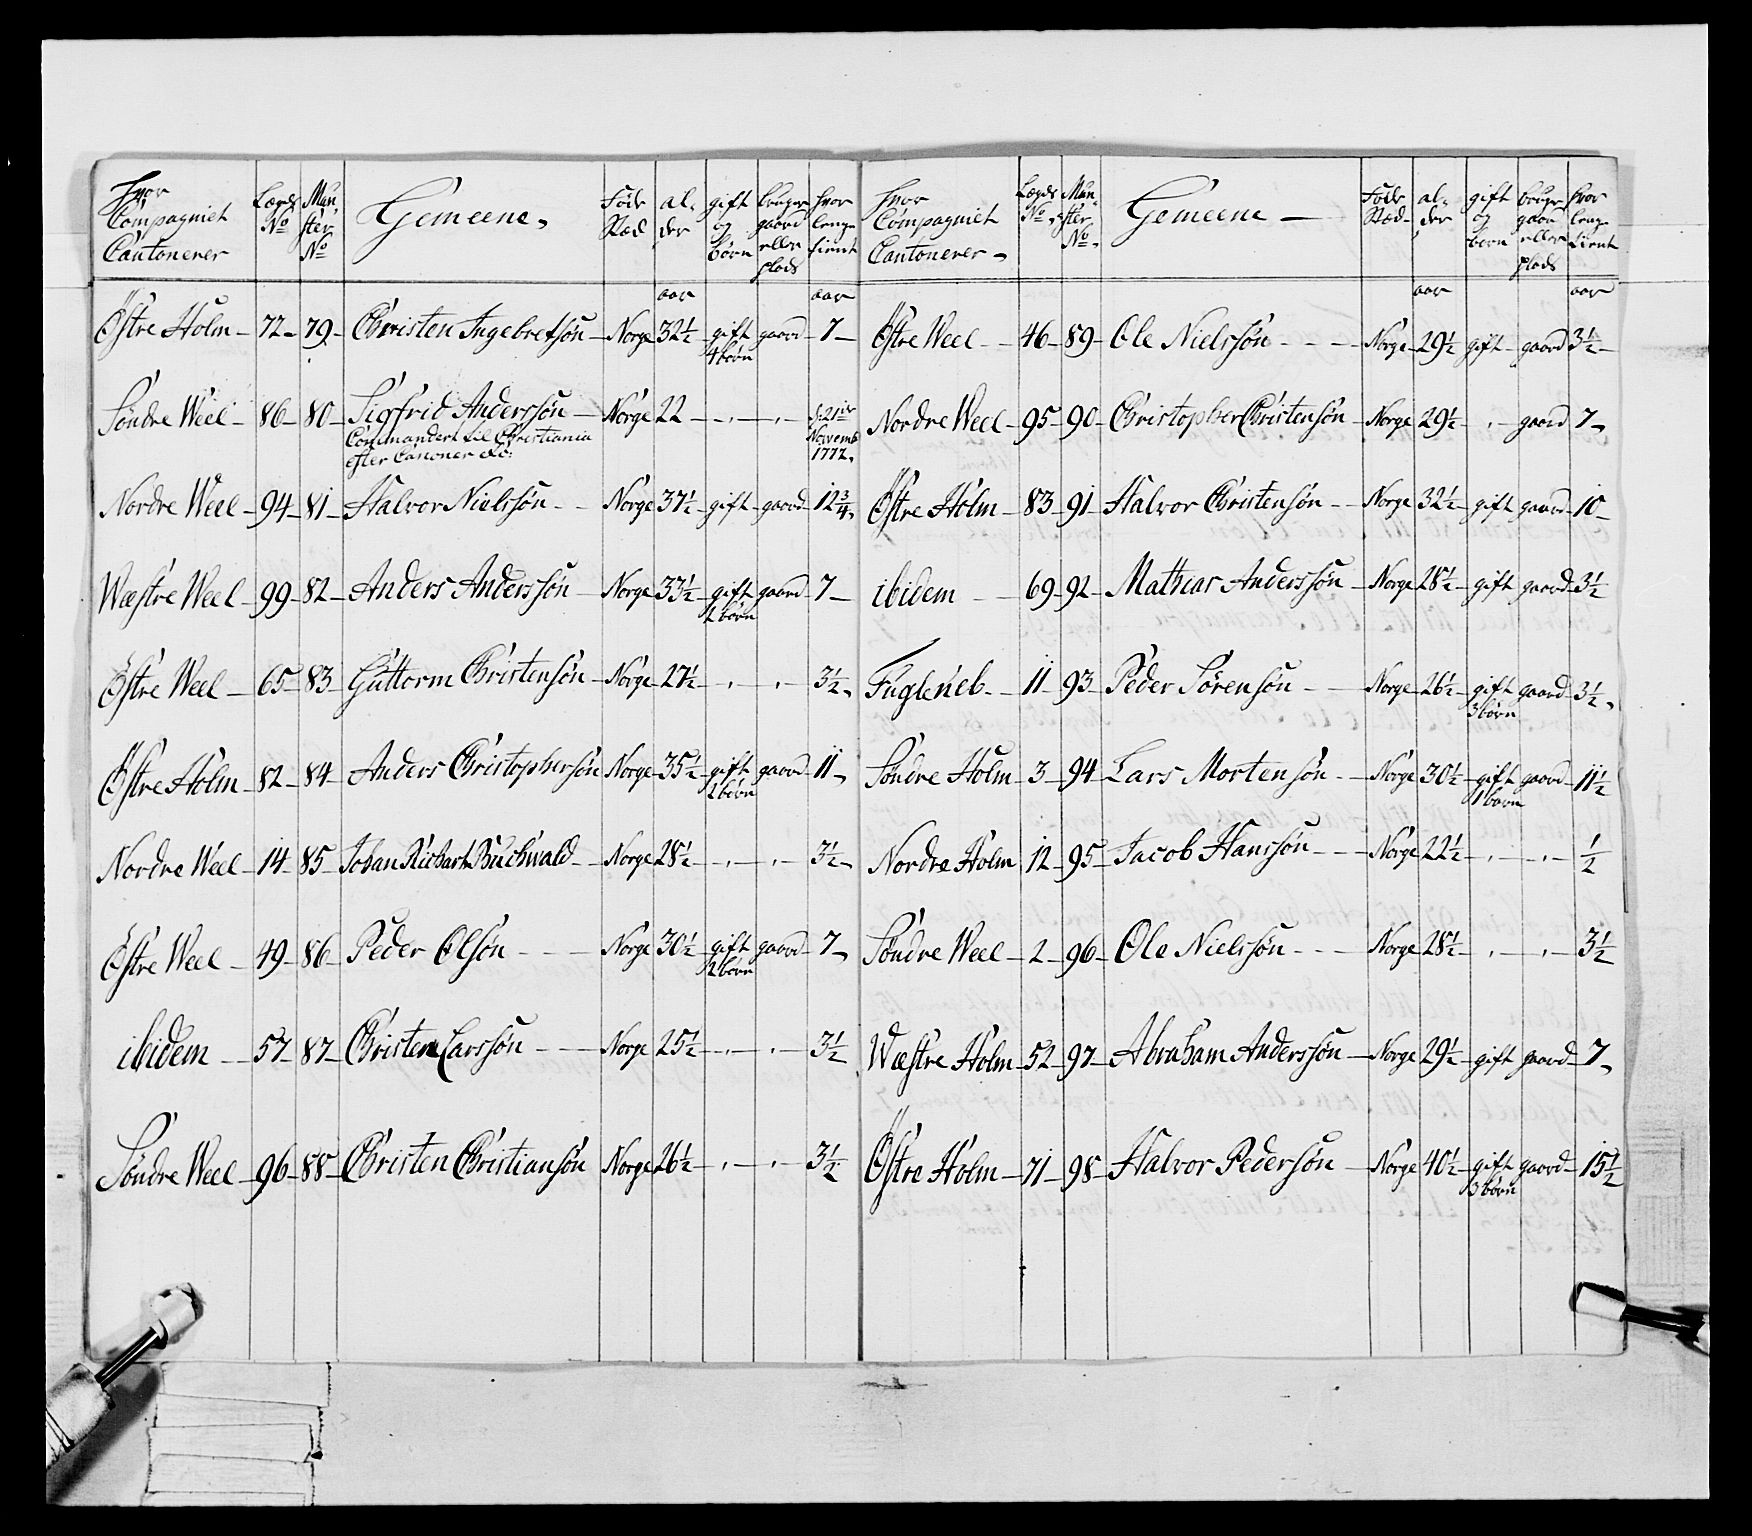 Hvor Compagniet Cantonerer | Lægds No | Mun,ster No | Gemeene, | Føde Stæd | al,der | gift og børn | bruger gaard eller plads | hvor lenge tient
aar | aar
Östre Holm - 72 - 79 - Christen Ingebretsøn - Norge 32½ gift 4 børn gaard - 7 -
Söndre Weel - 86 - 80 - Sigfrid Anderssøn - Norge 22 - . - . - d: 21de Novemb 1772,
Commandert til Christiania
efter Canoner &c:
Nordre Weel - 94 - 81 - Halvor Nielssøn - - Norge 37½ - gift - gaard - 12¾,
Wæstre Weel - 99 - 82 - Anders Anderssøn - Norge 33½ - gift 2 børn gaard - 7 -
Östre Weel - 65 - 83 - Guttorm Christensøn - Norge 27½ - . - . - 3½,
Östre Holm - 82 - 84 - Anders Christophersøn Norge 35½ - gift 2 børn gaard - 11 -
Nordre Weel - 14 - 85 - Johan Richart Buchwald - Norge 28½ - . - . - 3½ -
Östre Weel - 49 - 86 - Peder Olsøn - - - Norge 30½ - gift 2 børn gaard - 7 -
ibidem - 57 - 87 - Christen Larssøn - - Norge 25½ - . - . - 3½
Söndre Weel - 96 - 88 - Christen Christiansøn Norge 26½ - . - . - 3½
Hvor Compagniet Cantonerer - | Lægds No | Mun,ster No | Gemeene - | Føde Stæd - | al,der | gift og børn | bruger gaar eller plads | hvor lenge tient
aar | aar
Östre Weel - - 46 - 89 - Ole Nielssøn - - - Norge 29½ gift - gaard 3½ -
Nordre Weel - 95 - 90 - Christopher Christensøn - Norge - 29½ - . - gaard - 7 -
Östre Holm - 83 - 91 - Halvor Christensøn - - Norge 32½ - gift gaard - 10 -
ibidem - - 69 - 92 - Mathias Anderssøn - Norge 28½ - gift gaard - 3½
Fugleneb - - 11 - 93 - Peder Sørensøn - - Norge - 26½ - gift 3 børn gaard - 3½ -
Söndre Holm - 3 - 94 - Lars Mortensøn - - Norge 30½ - gift 1 barn gaard - 11½
Nordre Holm - 12 - 95 - Jacob Hanssøn - - - Norge 22½ - . - . - ½
Söndre Weel - 2 - 96 - Ole Nielssøn - - - Norge - 28½ - . - . - 3½
Wæstre Holm - 52 - 97 - Abraham Anderssøn - Norge 29½ - gift gaard - 7 -
Östre Holm - 71 - 98 - Halvor Pedersøn - Norge 40½ - gift 3 børn gaard - 15½